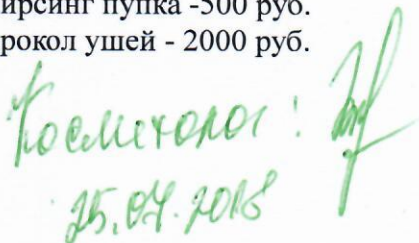 ирсинг пупка -500 руб.
рокол ушей - 2000 руб.
Косметолог:
25.07.2018